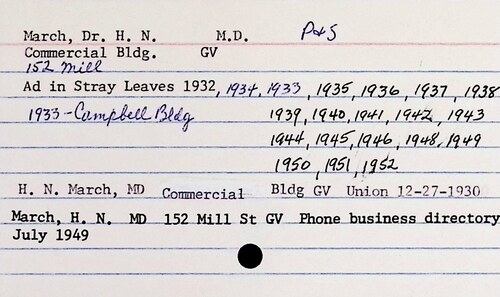 March, Dr. H. N. M.D. P&S
Commercial Bldg. GV
152 Mill
Ad in Stray Leaves 1932, 1934, 1933, 1935, 1936, 1937, 1938
1933 - Campbell Bldg 1939, 1940, 1941, 1942, 1943
1944, 1945, 1946, 1948, 1949
1950, 1951, 1952
H. N. March, MD Commercial Bldg GV Union 12-27-1930
March, H. N. MD 152 Mill St GV Phone business directory
July 1949